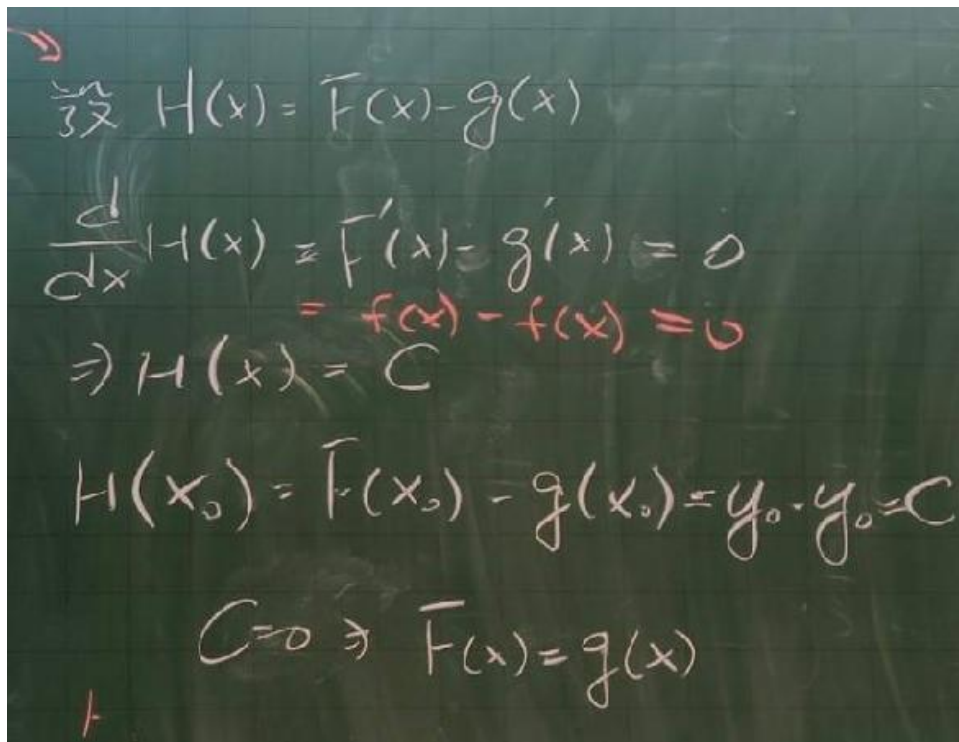 設 H(x) = F(x) - g(x)
d/dx H(x) = F'(x) - g'(x) = 0
= f(x) - f(x) = 0
⇒ H(x) = C
H(x₀) = F(x₀) - g(x₀) = y₀ - y₀ = C
C=0 ⇒ F(x) = g(x)